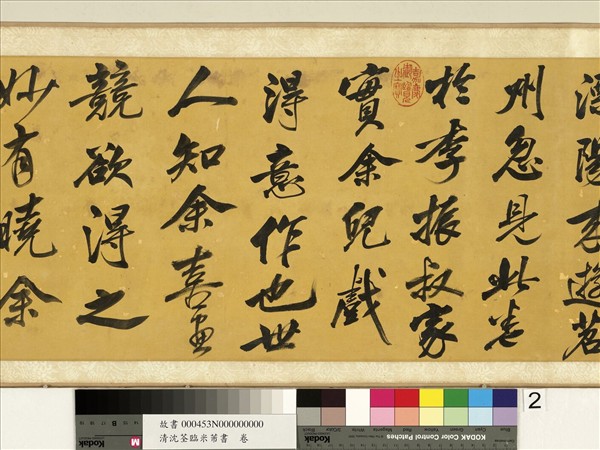 溧陽来遊苕
州忽見此卷
於李振叔家
實余兒戲
得意作也世
人知余喜畫
競欲得之
妙有曉余
嘉慶御覽之寶
2
故書 000453N000000000
清沈荃臨米芾書 卷
KODAK Color Control Patches
Kodak